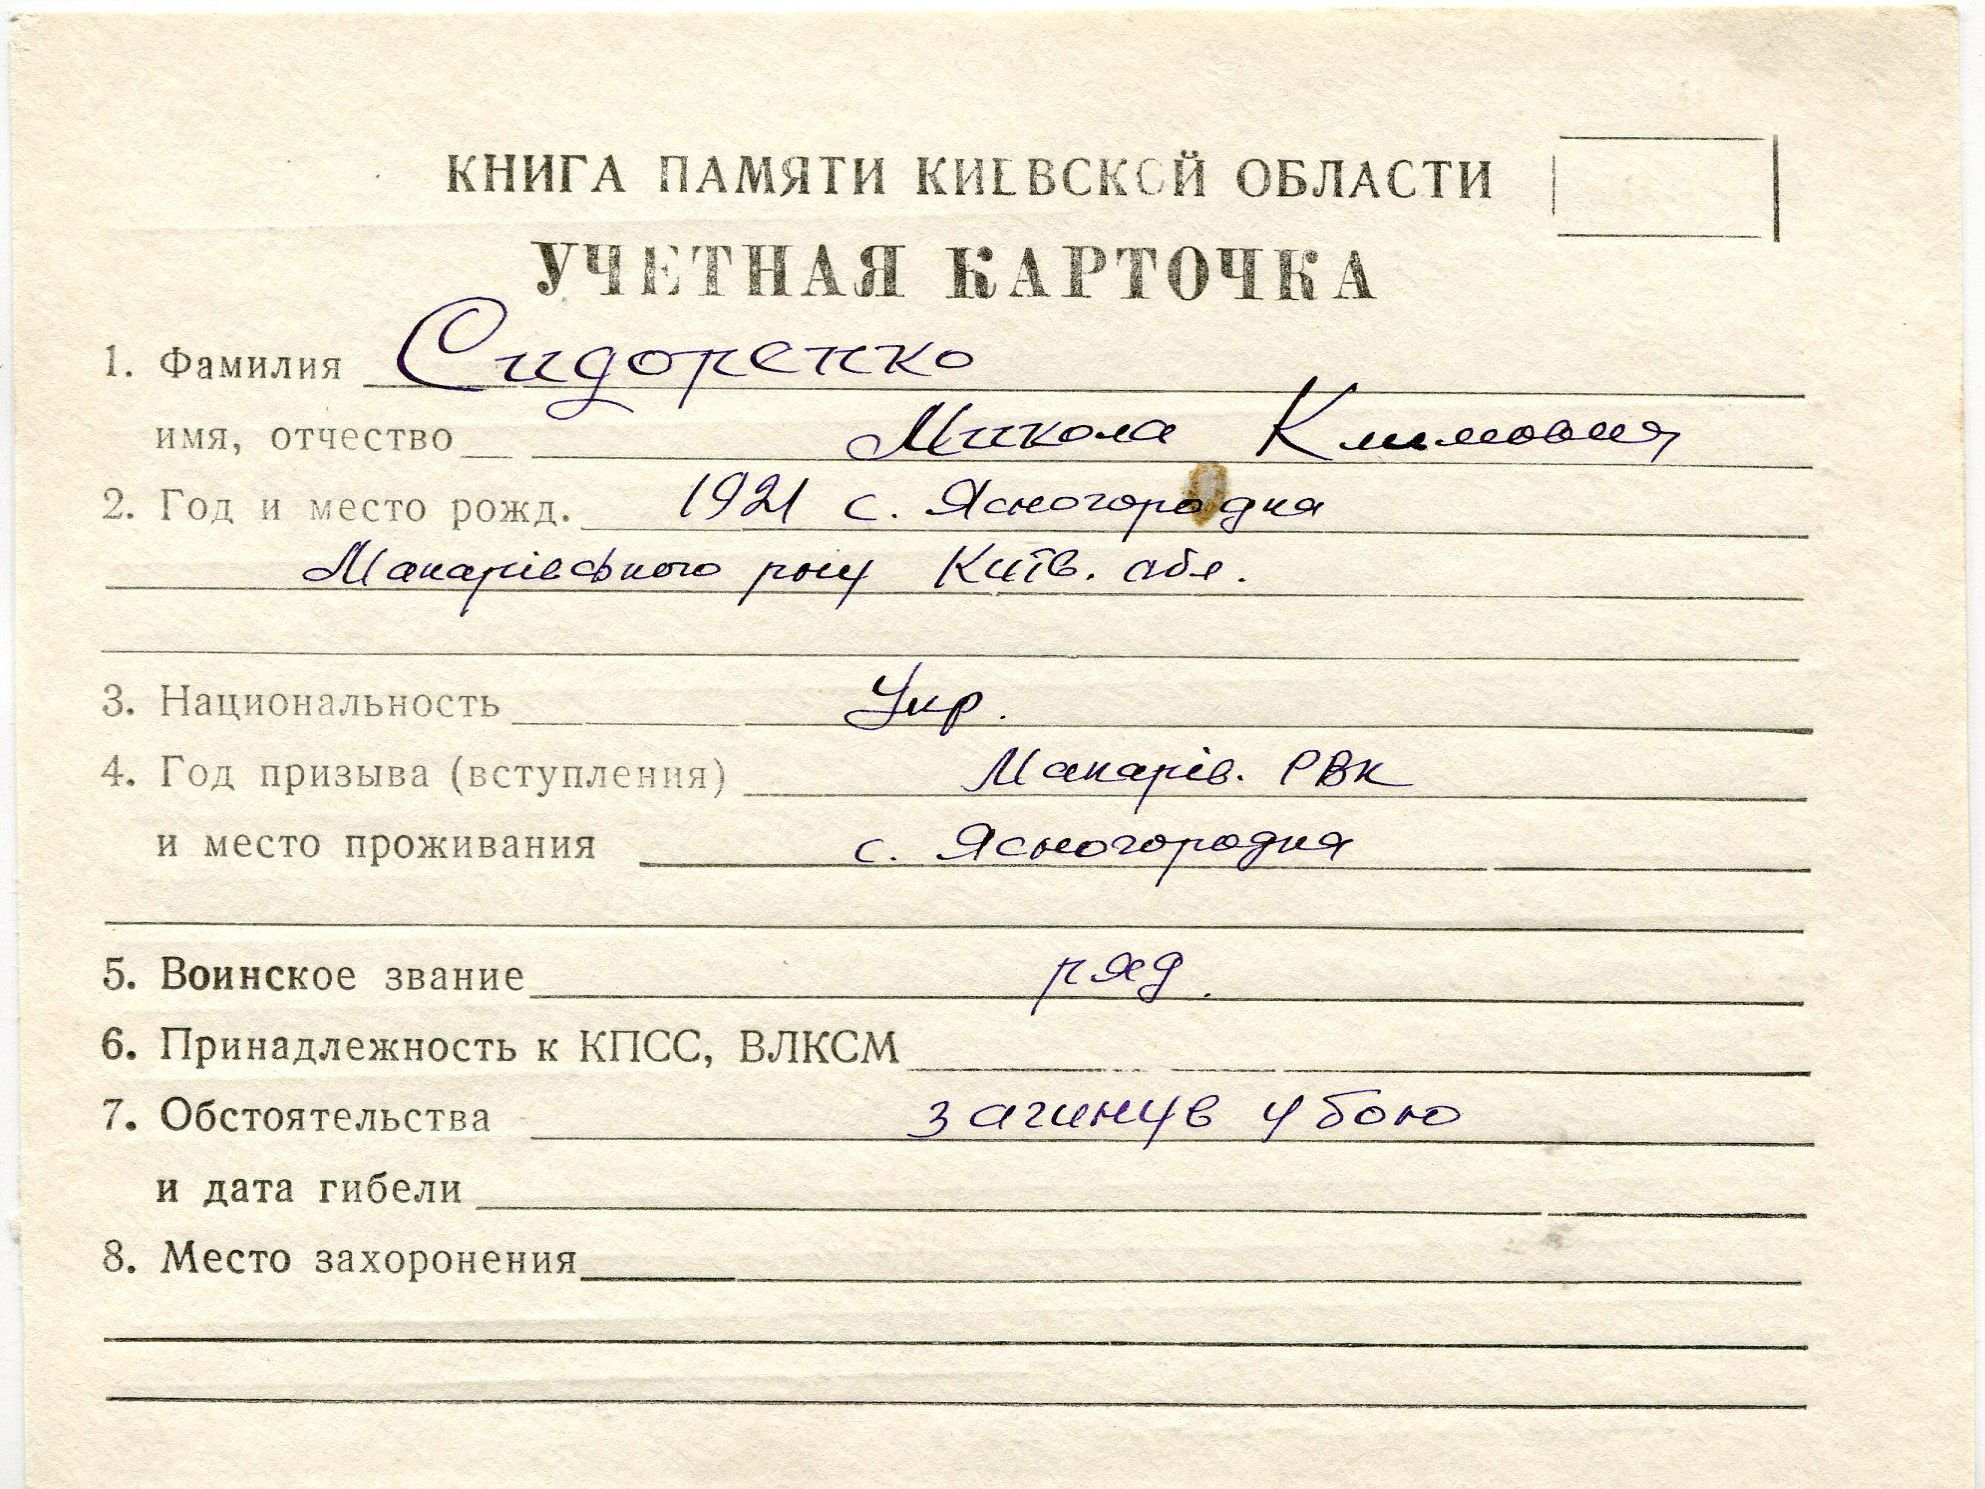 КНИГА ПАМЯТИ КИЕВСКОЙ ОБЛАСТИ
УЧЕТНАЯ КАРТОЧКА
1. Фамилия Сидоренко
имя, отчество Микола Климович
2. Год и место рожд. 1921 с. Ясногородка
Макарівського р-ну Київ. обл.
3. Национальность Укр.
4. Год призыва (вступления) Макарів. РВК
и место проживания с. Ясногородка
5. Воинское звание ряд.
6. Принадлежность к КПСС, ВЛКСМ
7. Обстоятельства загинув у бою
и дата гибели
8. Место захоронения